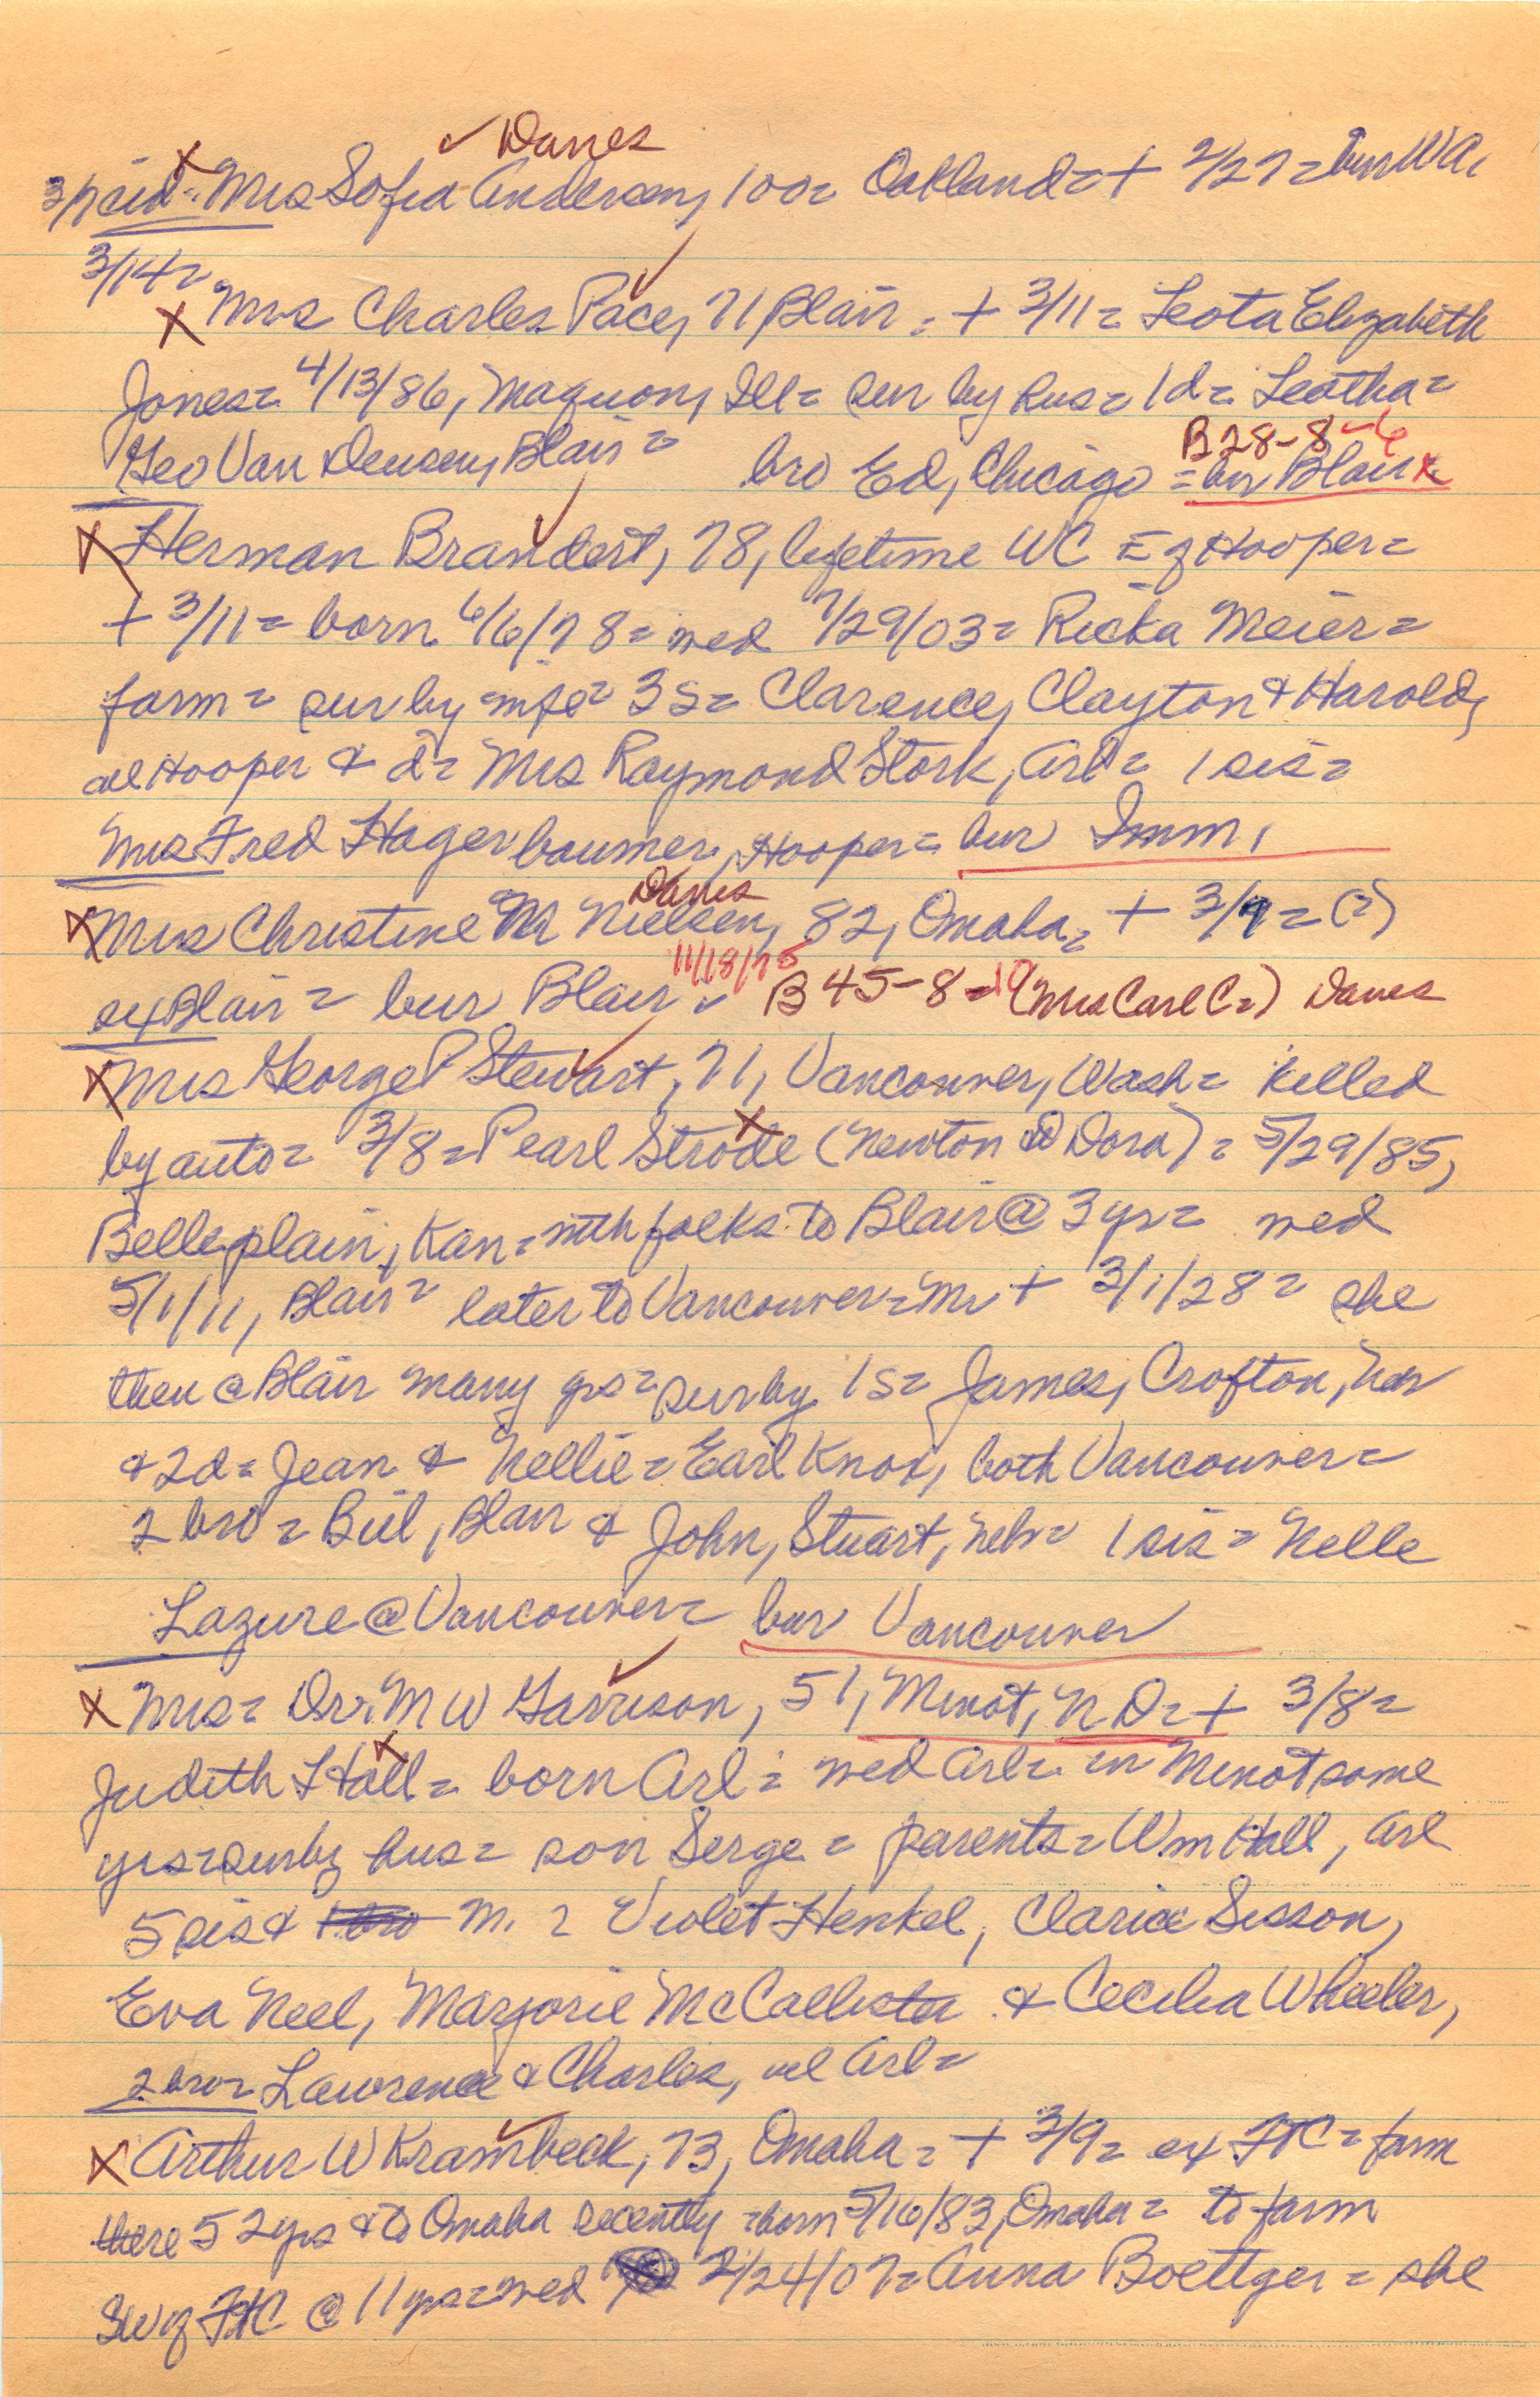 Danes
Mrs Sofia Andersen, 100= Oakland= + 2/27= bur WA,
3/14=
Mrs Charles Pace, 71, Blair= + 3/11= Leota Elizabeth
Jones= 4/13/86, Maquon, Ill= sur by hus= 1d= Leatha=
B28-8-6
Geo Van Deusen, Blair= bro Ed, Chicago =bur Blair
Herman Brandert, 78, lifetime WC = of Hooper=
+ 3/11= born 6/6/78= wed 7/29/03= Ricka Meier=
farm= sur by wife= 3s= Clarence, Clayton & Harold,
all Hooper & d= Mrs Raymond Stork, Arl= 1 sis=
Mrs Fred Hagerbaumer, Hooper= bur Imm,
Danes
Mrs Christine M Nielsen, 82, Omaha= + 3/9=(?)
11/18/75
ex Blair= bur Blair B45-8-10 (Mrs Carl C=) Danes
Mrs George P Stewart, 71, Vancouver, Wash= killed
by auto= 3/8= Pearl Strode (Newton & Dora)= 5/29/85,
Belleplain, Kan= with folks to Blair @ 3 yrs= wed
5/1/11, Blair= later to Vancouver= Mr + 3/1/28= she
then @ Blair many yrs= sur by 1s= James, Crofton, Neb
& 2d= Jean & Nellie= Earl Knox, both Vancouver=
2 bro= Bill, Blair & John, Stuart, Neb= 1 sis= Nelle
Lazure @ Vancouver= bur Vancouver
Mrs= Dr. M W Garrison, 51, Minot, N D= + 3/8=
Judith Hall= born Arl= wed Arl= in Minot some
yrs= sur by hus= son Serge= parents= Wm Hall, Arl
5 sis & M.= Violet Henkel, Clarice Sisson,
Eva Neel, Marjorie McCallister & Cecilia Wheeler,
2 bro= Lawrence & Charles, all Arl=
Arthur W Krambeck, 73, Omaha= + 3/9= ex FTC= farm
there 52 yrs & to Omaha recently =born 5/16/83, Omaha= to farm
SW of FTC @ 11 yrs= wed 2/24/07= Anna Boettger= she